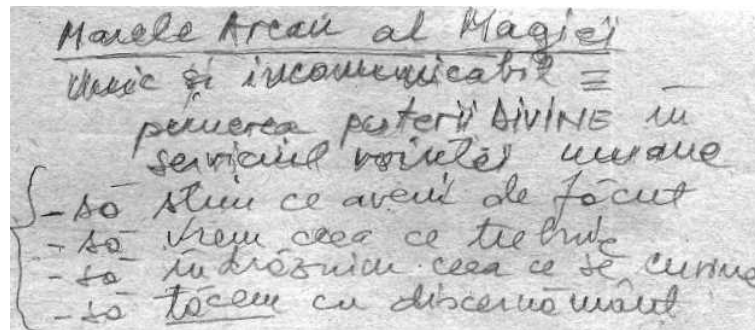 Marele Arcan al Magiei
unic și incomunicabil =
punerea puterii DIVINE în
serviciul voinței umane
- să știm ce avem de făcut
- să vrem ceea ce trebuie
- să îndrăznim ceea ce se cuvine
- să tăcem cu discernământ